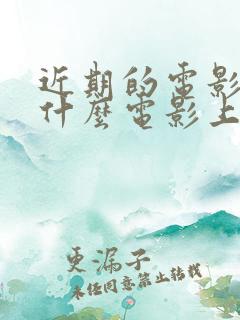 近期的電影
什麼電影上
更漏子
未经同意禁止转载